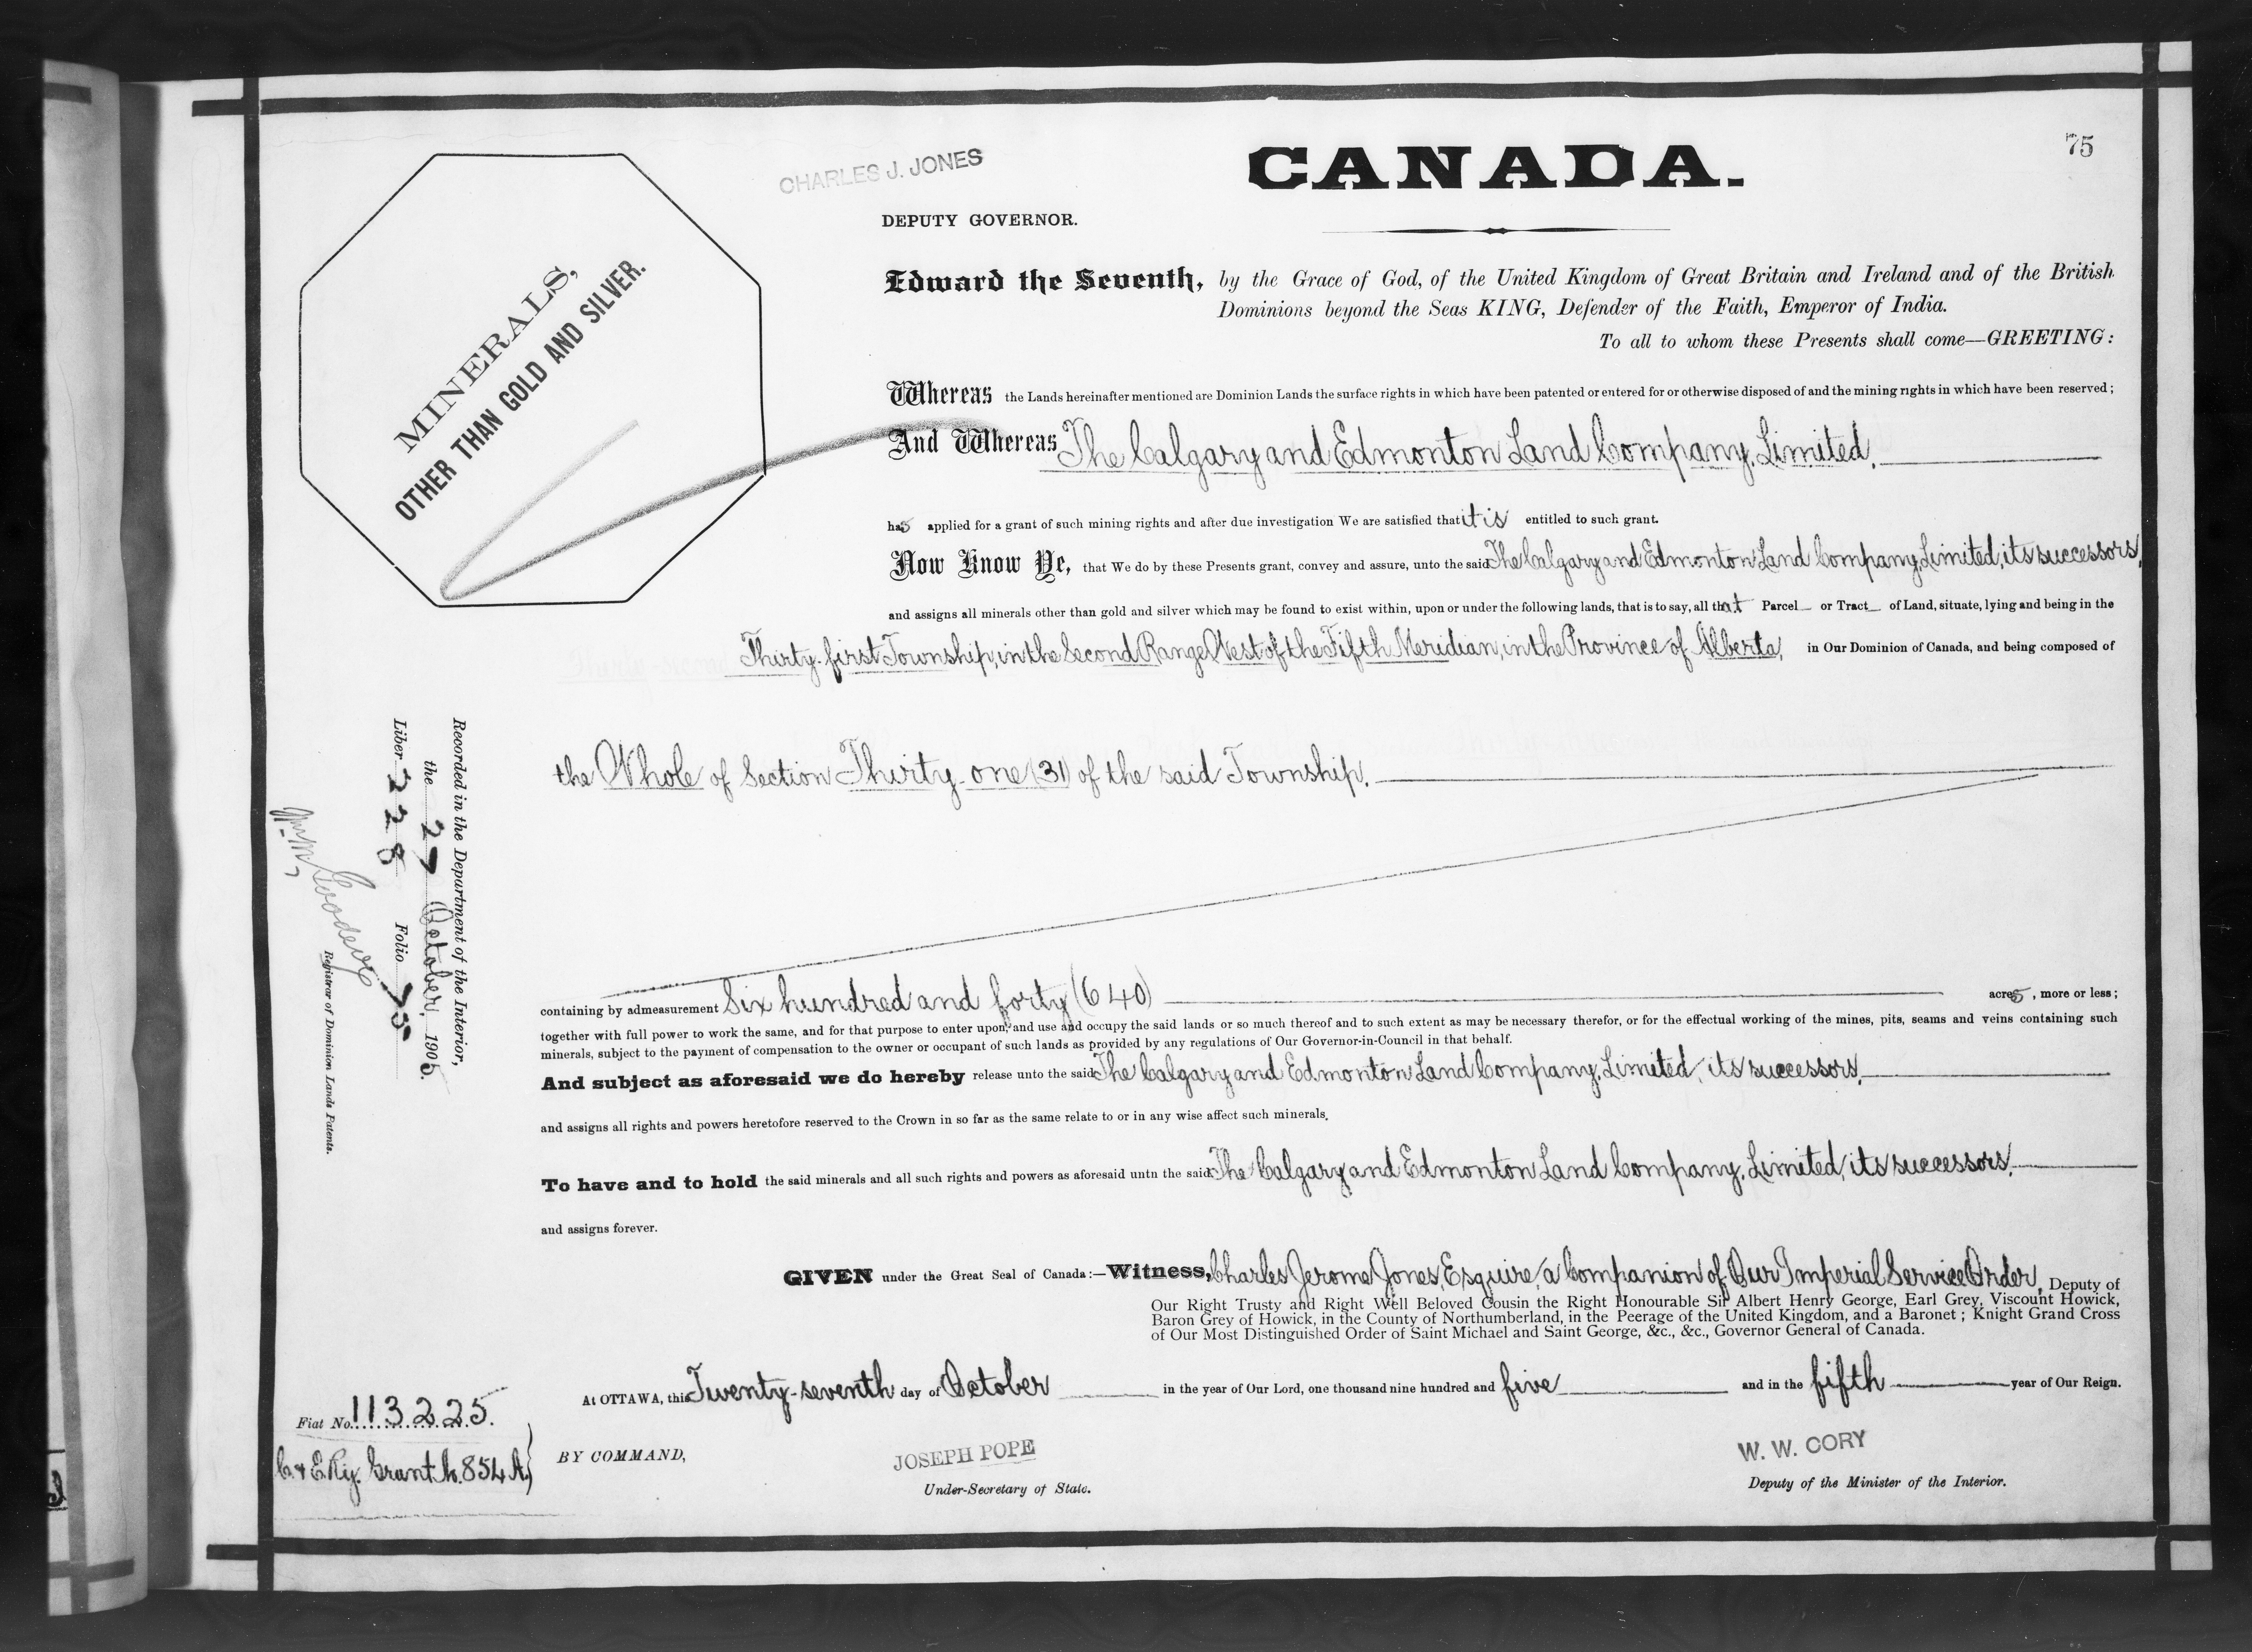 75
CHARLES J. JONES
CANADA.
DEPUTY GOVERNOR.
MINERALS,
OTHER THAN GOLD AND SILVER.
Edward the Seventh, by the Grace of God, of the United Kingdom of Great Britain and Ireland and of the British
Dominions beyond the Seas KING, Defender of the Faith, Emperor of India.
To all to whom these Presents shall come—GREETING:
Whereas the Lands hereinafter mentioned are Dominion Lands the surface rights in which have been patented or entered for or otherwise disposed of and the mining rights in which have been reserved;
And Whereas The Calgary and Edmonton Land Company, Limited,
has applied for a grant of such mining rights and after due investigation We are satisfied that it is entitled to such grant.
Now Know Ye, that We do by these Presents grant, convey and assure, unto the said The Calgary and Edmonton Land Company, Limited, its successors,
and assigns all minerals other than gold and silver which may be found to exist within, upon or under the following lands, that is to say, all that Parcel or Tract of Land, situate, lying and being in the
Thirty-first Township, in the Second Range West of the Fifth Meridian, in the Province of Alberta, in Our Dominion of Canada, and being composed of
the Whole of Section Thirty-one (31) of the said Township.
containing by admeasurement Six hundred and forty (640) acres, more or less;
together with full power to work the same, and for that purpose to enter upon, and use and occupy the said lands or so much thereof and to such extent as may be necessary therefor, or for the effectual working of the mines, pits, seams and veins containing such
minerals, subject to the payment of compensation to the owner or occupant of such lands as provided by any regulations of Our Governor-in-Council in that behalf.
And subject as aforesaid we do hereby release unto the said The Calgary and Edmonton Land Company, Limited, its successors,
and assigns all rights and powers heretofore reserved to the Crown in so far as the same relate to or in any wise affect such minerals.
To have and to hold the said minerals and all such rights and powers as aforesaid untn the said The Calgary and Edmonton Land Company, Limited, its successors,
and assigns forever.
GIVEN under the Great Seal of Canada:—Witness, Charles Jerome Jones, Esquire, a Companion of Our Imperial Service Order, Deputy of
Our Right Trusty and Right Well Beloved Cousin the Right Honourable Sir Albert Henry George, Earl Grey, Viscount Howick,
Baron Grey of Howick, in the County of Northumberland, in the Peerage of the United Kingdom, and a Baronet; Knight Grand Cross
of Our Most Distinguished Order of Saint Michael and Saint George, &c., &c., Governor General of Canada.
At OTTAWA, this Twenty-seventh day of October in the year of Our Lord, one thousand nine hundred and five and in the fifth year of Our Reign.
BY COMMAND,
JOSEPH POPE
Under-Secretary of State.
W. W. CORY
Deputy of the Minister of the Interior.
Recorded in the Department of the Interior,
the 27 October, 1905.
Liber 228 Folio 75
Goodeve
Registrar of Dominion Lands Patents.
Fiat No. 113225.
C. & E. Ry. Grant. 854 A.